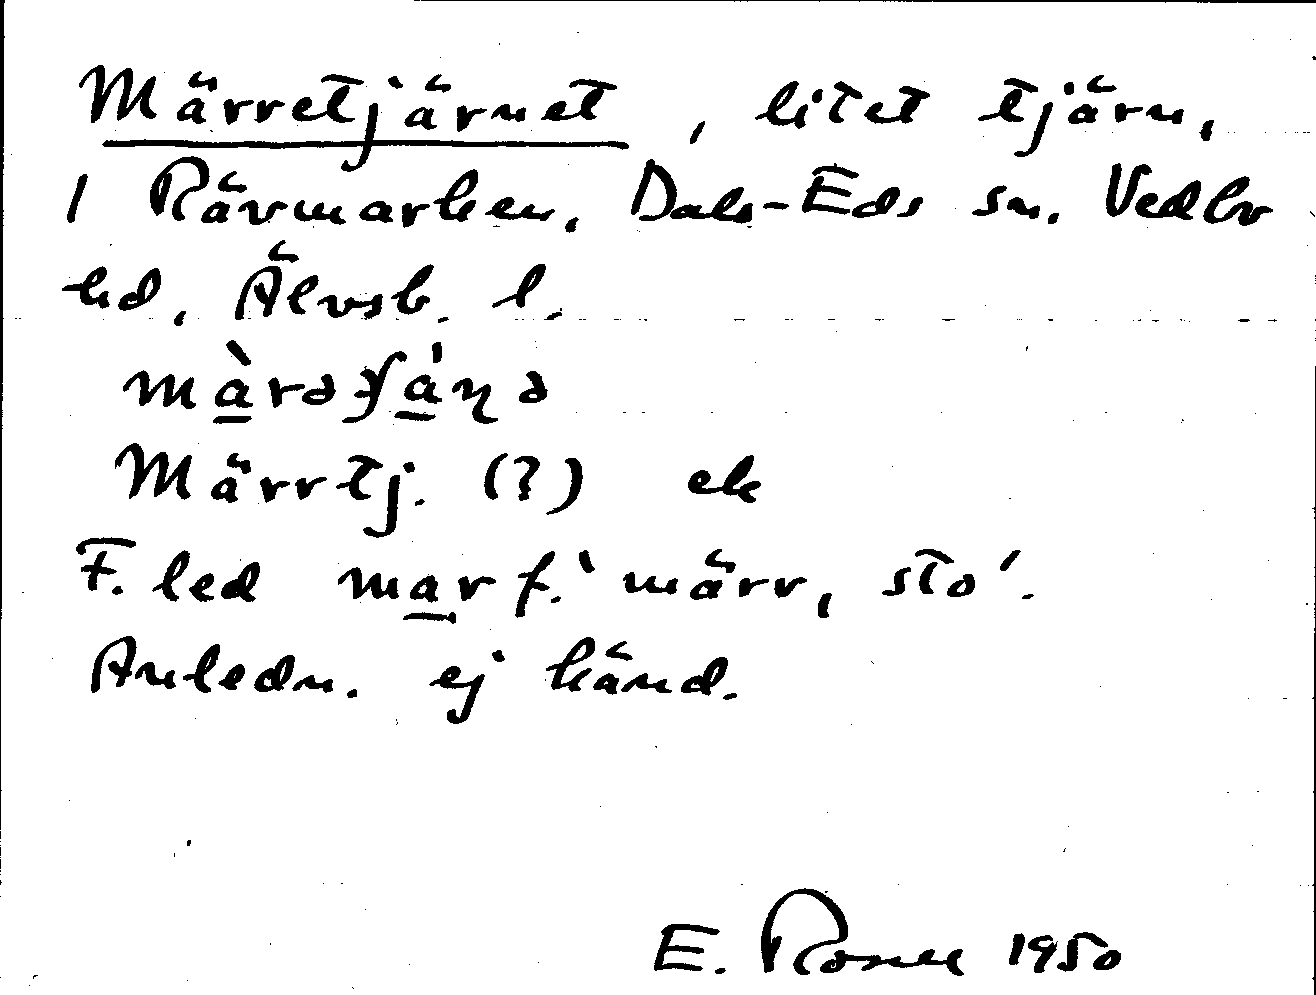 Märretjärnet, litet tjärn,
1 Rävmarken, Dals-Eds sn. Vedbo
hd, Älvsb. l.
Märrtj. (?) ek
F. led ma̲r f. ‛märr, sto’.
Anledn. ej känd.
E. Rosell 1950